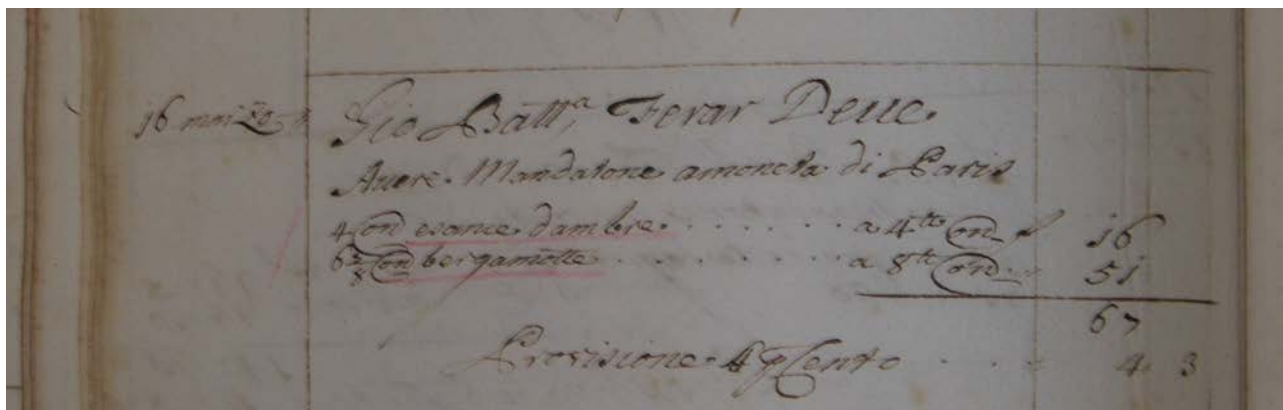 16 marzo Gio Batt.a Ferar Deue.
Auere. Mandatone amoneta di Paris
4 on esance. dambre. . . . . . . a 4tt on f 16
6 3/8 on bergamotte . . . . . . . . a 8tt on 51
67
Provisione. 4 p Cento . . . 4. 3